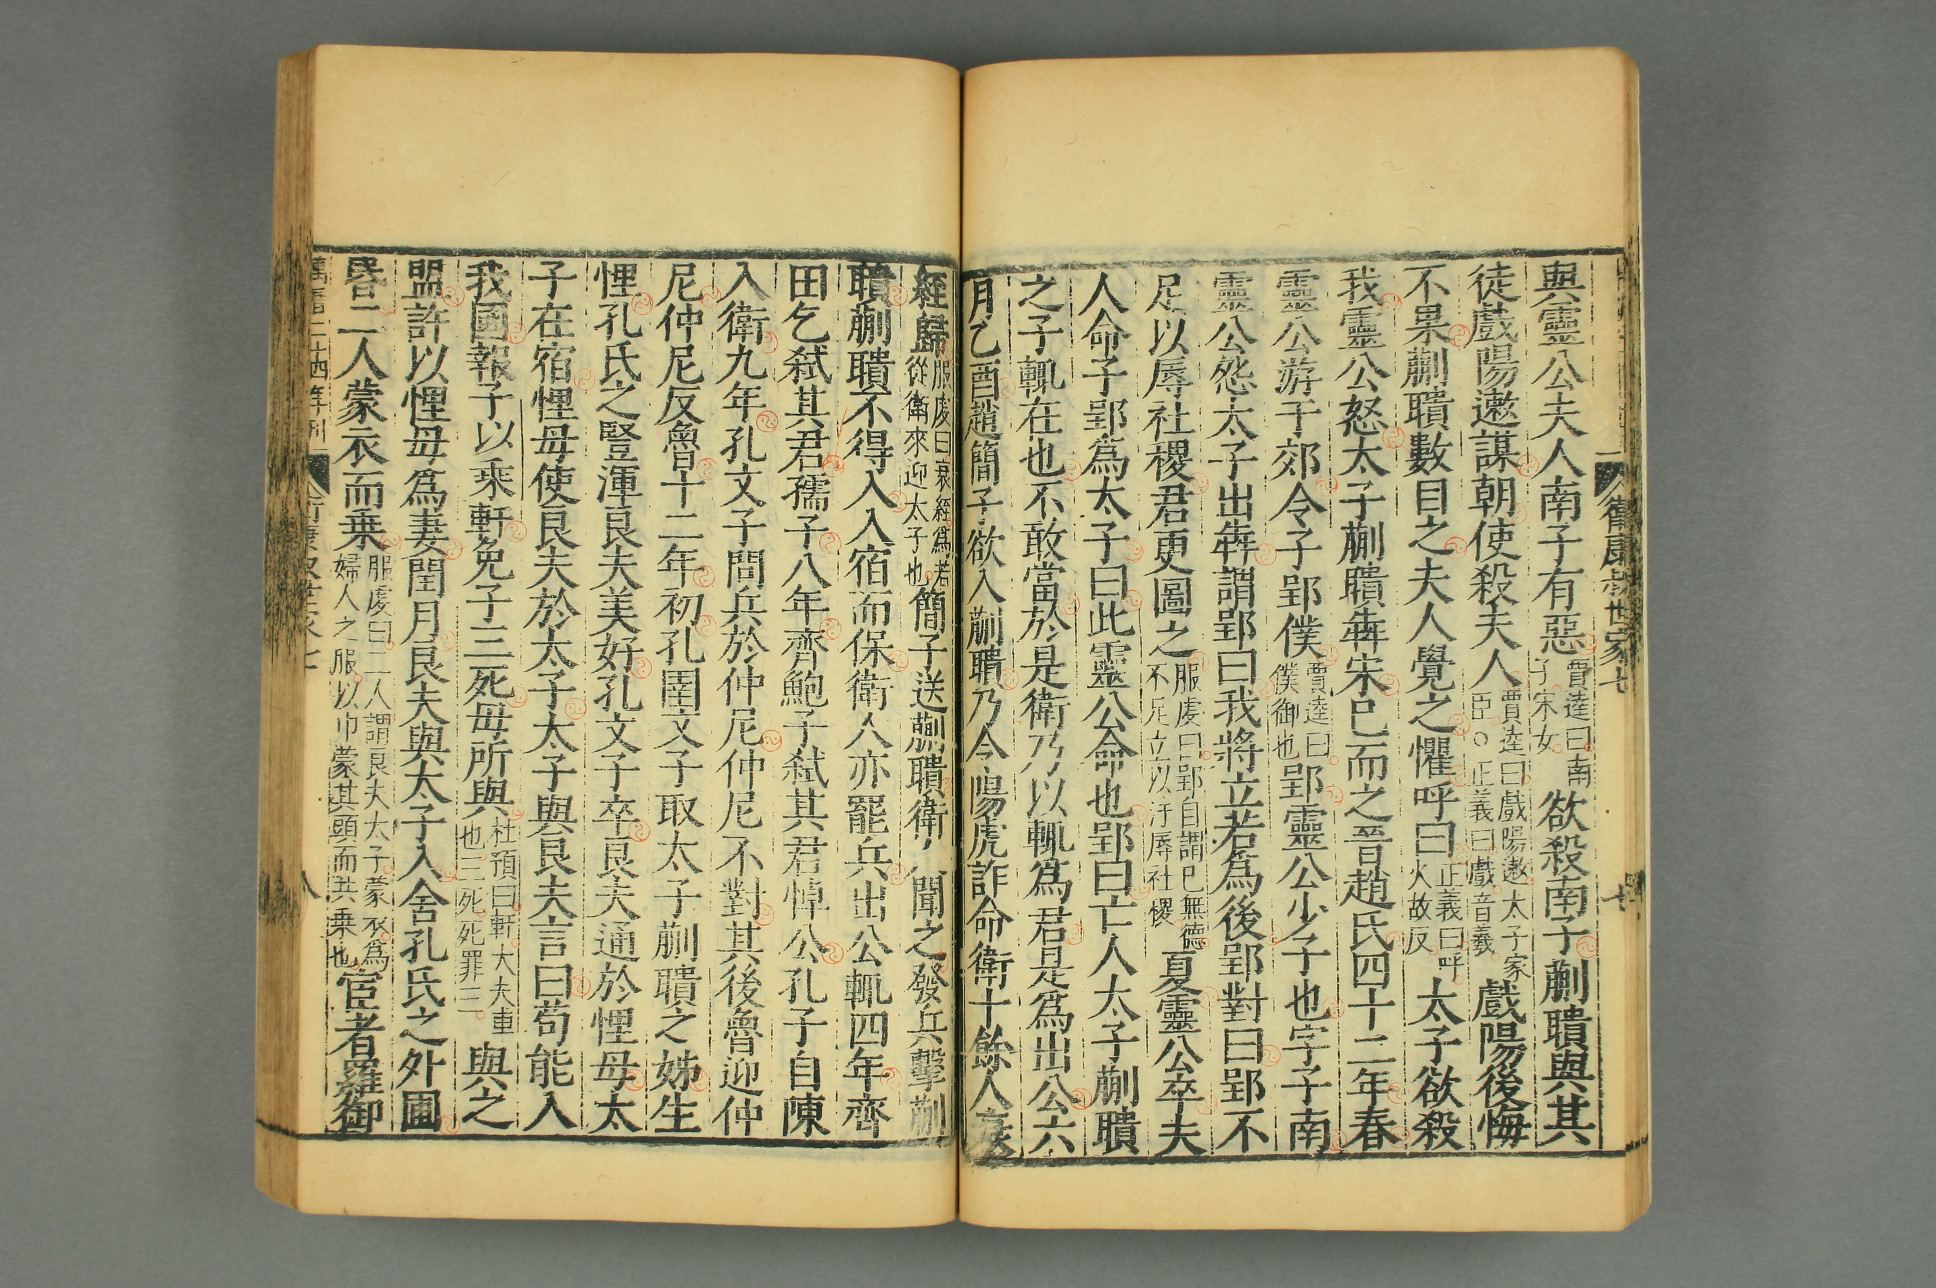 衞康叔世家七
與靈公夫人南子有惡賈逵曰南子宋女欲殺南子蒯聵與其
徒戲陽遬謀朝使殺夫人賈逵曰戲陽遬太子家臣○正義曰戲音羲戲陽後悔
不果蒯聵數目之夫人覺之懼呼曰正義曰呼火故反太子欲殺
我靈公怒太子蒯聵犇宋已而之晉趙氏四十二年春
靈公游于郊令子郢僕賈逵曰僕御也郢靈公少子也字子南
靈公怨太子出犇謂郢曰我將立若為後郢對曰郢不
足以辱社稷君更圖之服虔曰郢自謂已無德不足立以汙辱社稷夏靈公卒夫
人命子郢為太子曰此靈公命也郢曰亡人太子蒯聵
之子輒在也不敢當於是衛乃以輒為君是為出公六
月乙酉趙簡子欲入蒯聵乃令陽虎詐命衛十餘人衰
絰歸服虔曰衰絰為若從衛來迎太子也簡子送蒯聵衛人聞之發兵擊蒯
聵蒯聵不得入入宿而保衛人亦罷兵出公輒四年齊
田乞弑其君孺子八年齊鮑子弑其君悼公孔子自陳
入衛九年孔文子問兵於仲尼仲尼不對其後魯迎仲
尼仲尼反魯十二年初孔圉文子取太子蒯聵之姊生
悝孔氏之豎渾良夫美好孔文子卒良夫通於悝母太
子在宿悝母使良夫於太子太子與良夫言曰苟能入
我國報子以乘軒免子三死毋所與杜預曰軒大夫車也三死死罪三與之
盟許以悝母為妻閏月良夫與太子入舍孔氏之外圃
昏二人蒙衣而乘服虔曰二人謂良夫太子蒙衣為婦人之服以巾蒙其頭而共乘也宦者羅御
萬曆二十四年刊
八